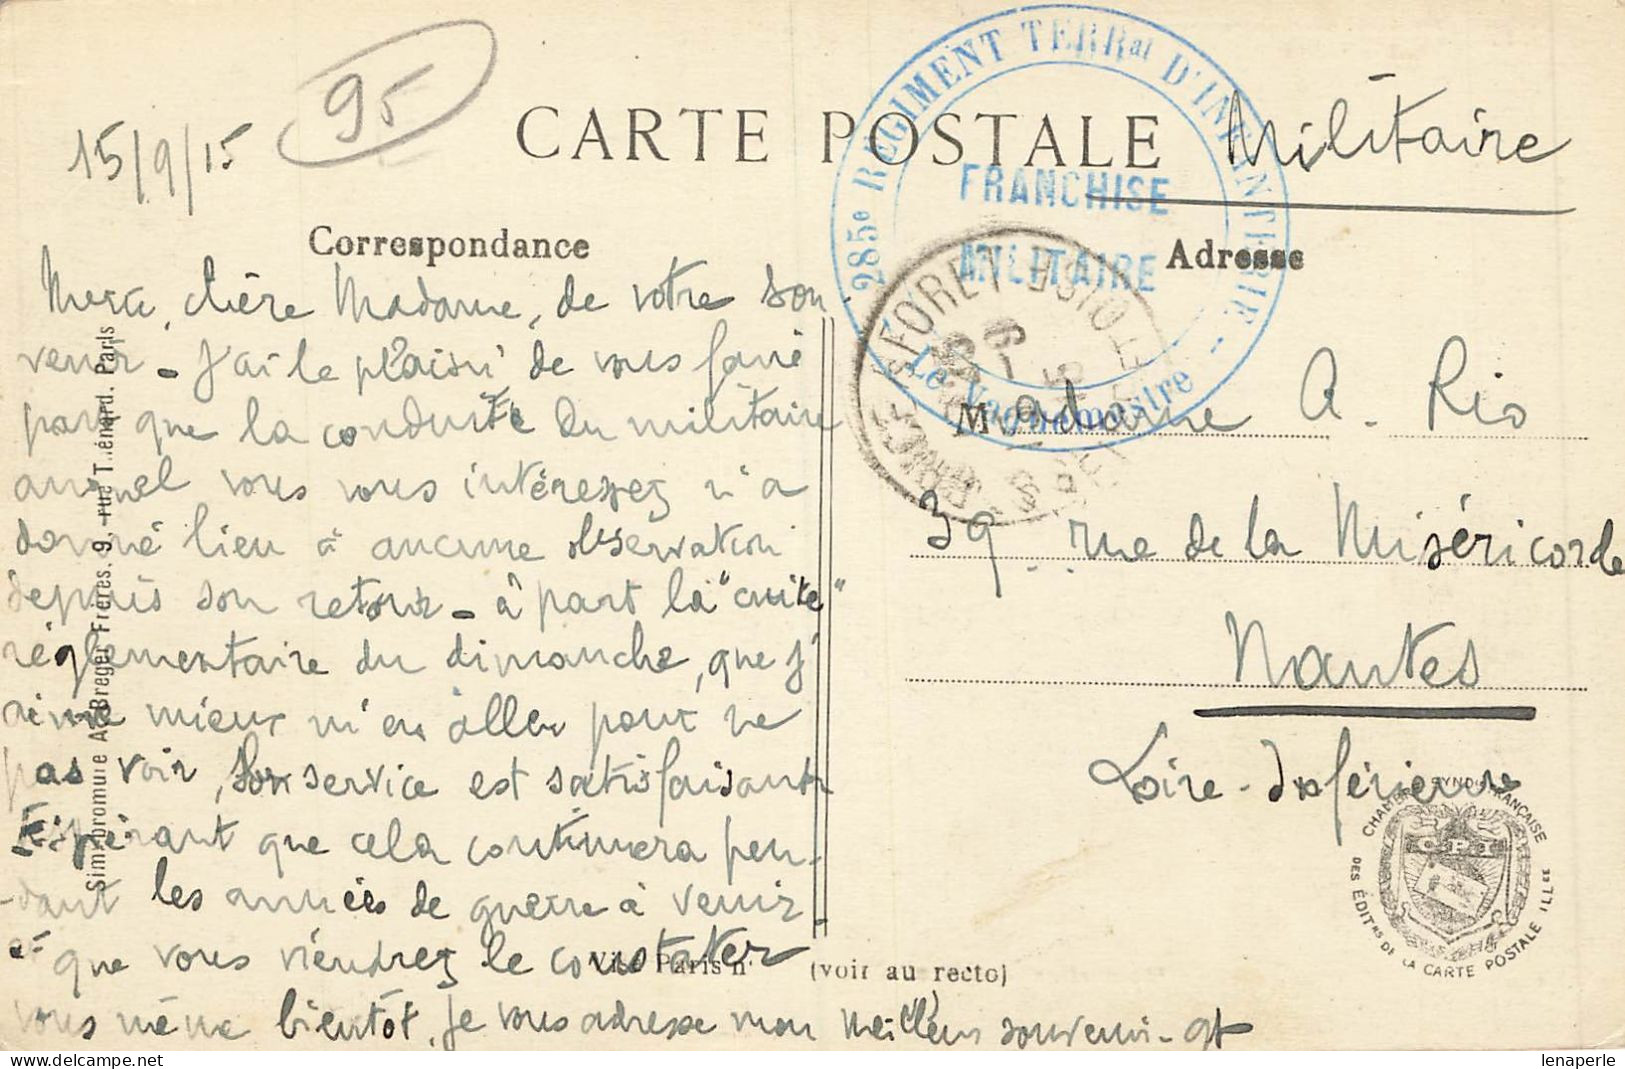 15/9/15
95
CARTE POSTALE
Militaire
285e REGIMENT TERRal D'INFANTERIE
FRANCHISE
MILITAIRE
Le Vaguemestre
Correspondance
Adresse
Merci, chère Madame, de votre sou-
venir - J'ai le plaisir de vous faire
part que la conduite du militaire
auquel vous vous intéressez n'a
donné lieu à aucune observation
depuis son retour - à part la "cuite"
réglementaire du dimanche, que j'
aime mieux m'en aller pour ne
pas voir, son service est satisfaisant
Espérant que cela continuera pen-
dant les années de guerre à venir -
et que vous viendrez le constater
vous même bientôt, je vous adresse mon meilleur souvenir -
Madame A. Rio
39 rue de la Miséricorde
Nantes
Loire-Inférieure
Simili-bromure A. Breger Frères, 9, rue Thénard. Paris
Visé Paris n°
(voir au recto)
CHAMBRE SYNDle FRANÇAISE
DES ÉDITRS DE LA CARTE POSTALE ILLée
C P I
lenaperle